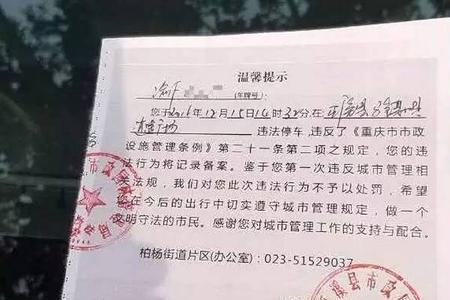 温馨提示
渝F
(车牌号)：
您于2016年12月15日14时32分，在
广场 违法停车，违反了《重庆市市政
设施管理条例》第二十一条第二项之规定，您的违
法行为将记录备案。鉴于您第一次违反城市管理相
关法规，我们对您此次违法行为不予以处罚，希望
您在今后的出行中切实遵守城市管理规定，做一个
文明守法的市民。感谢您对城市管理工作的支持与配合。
柏杨街道片区(办公室)：023-51529037
溪县市政
县市政